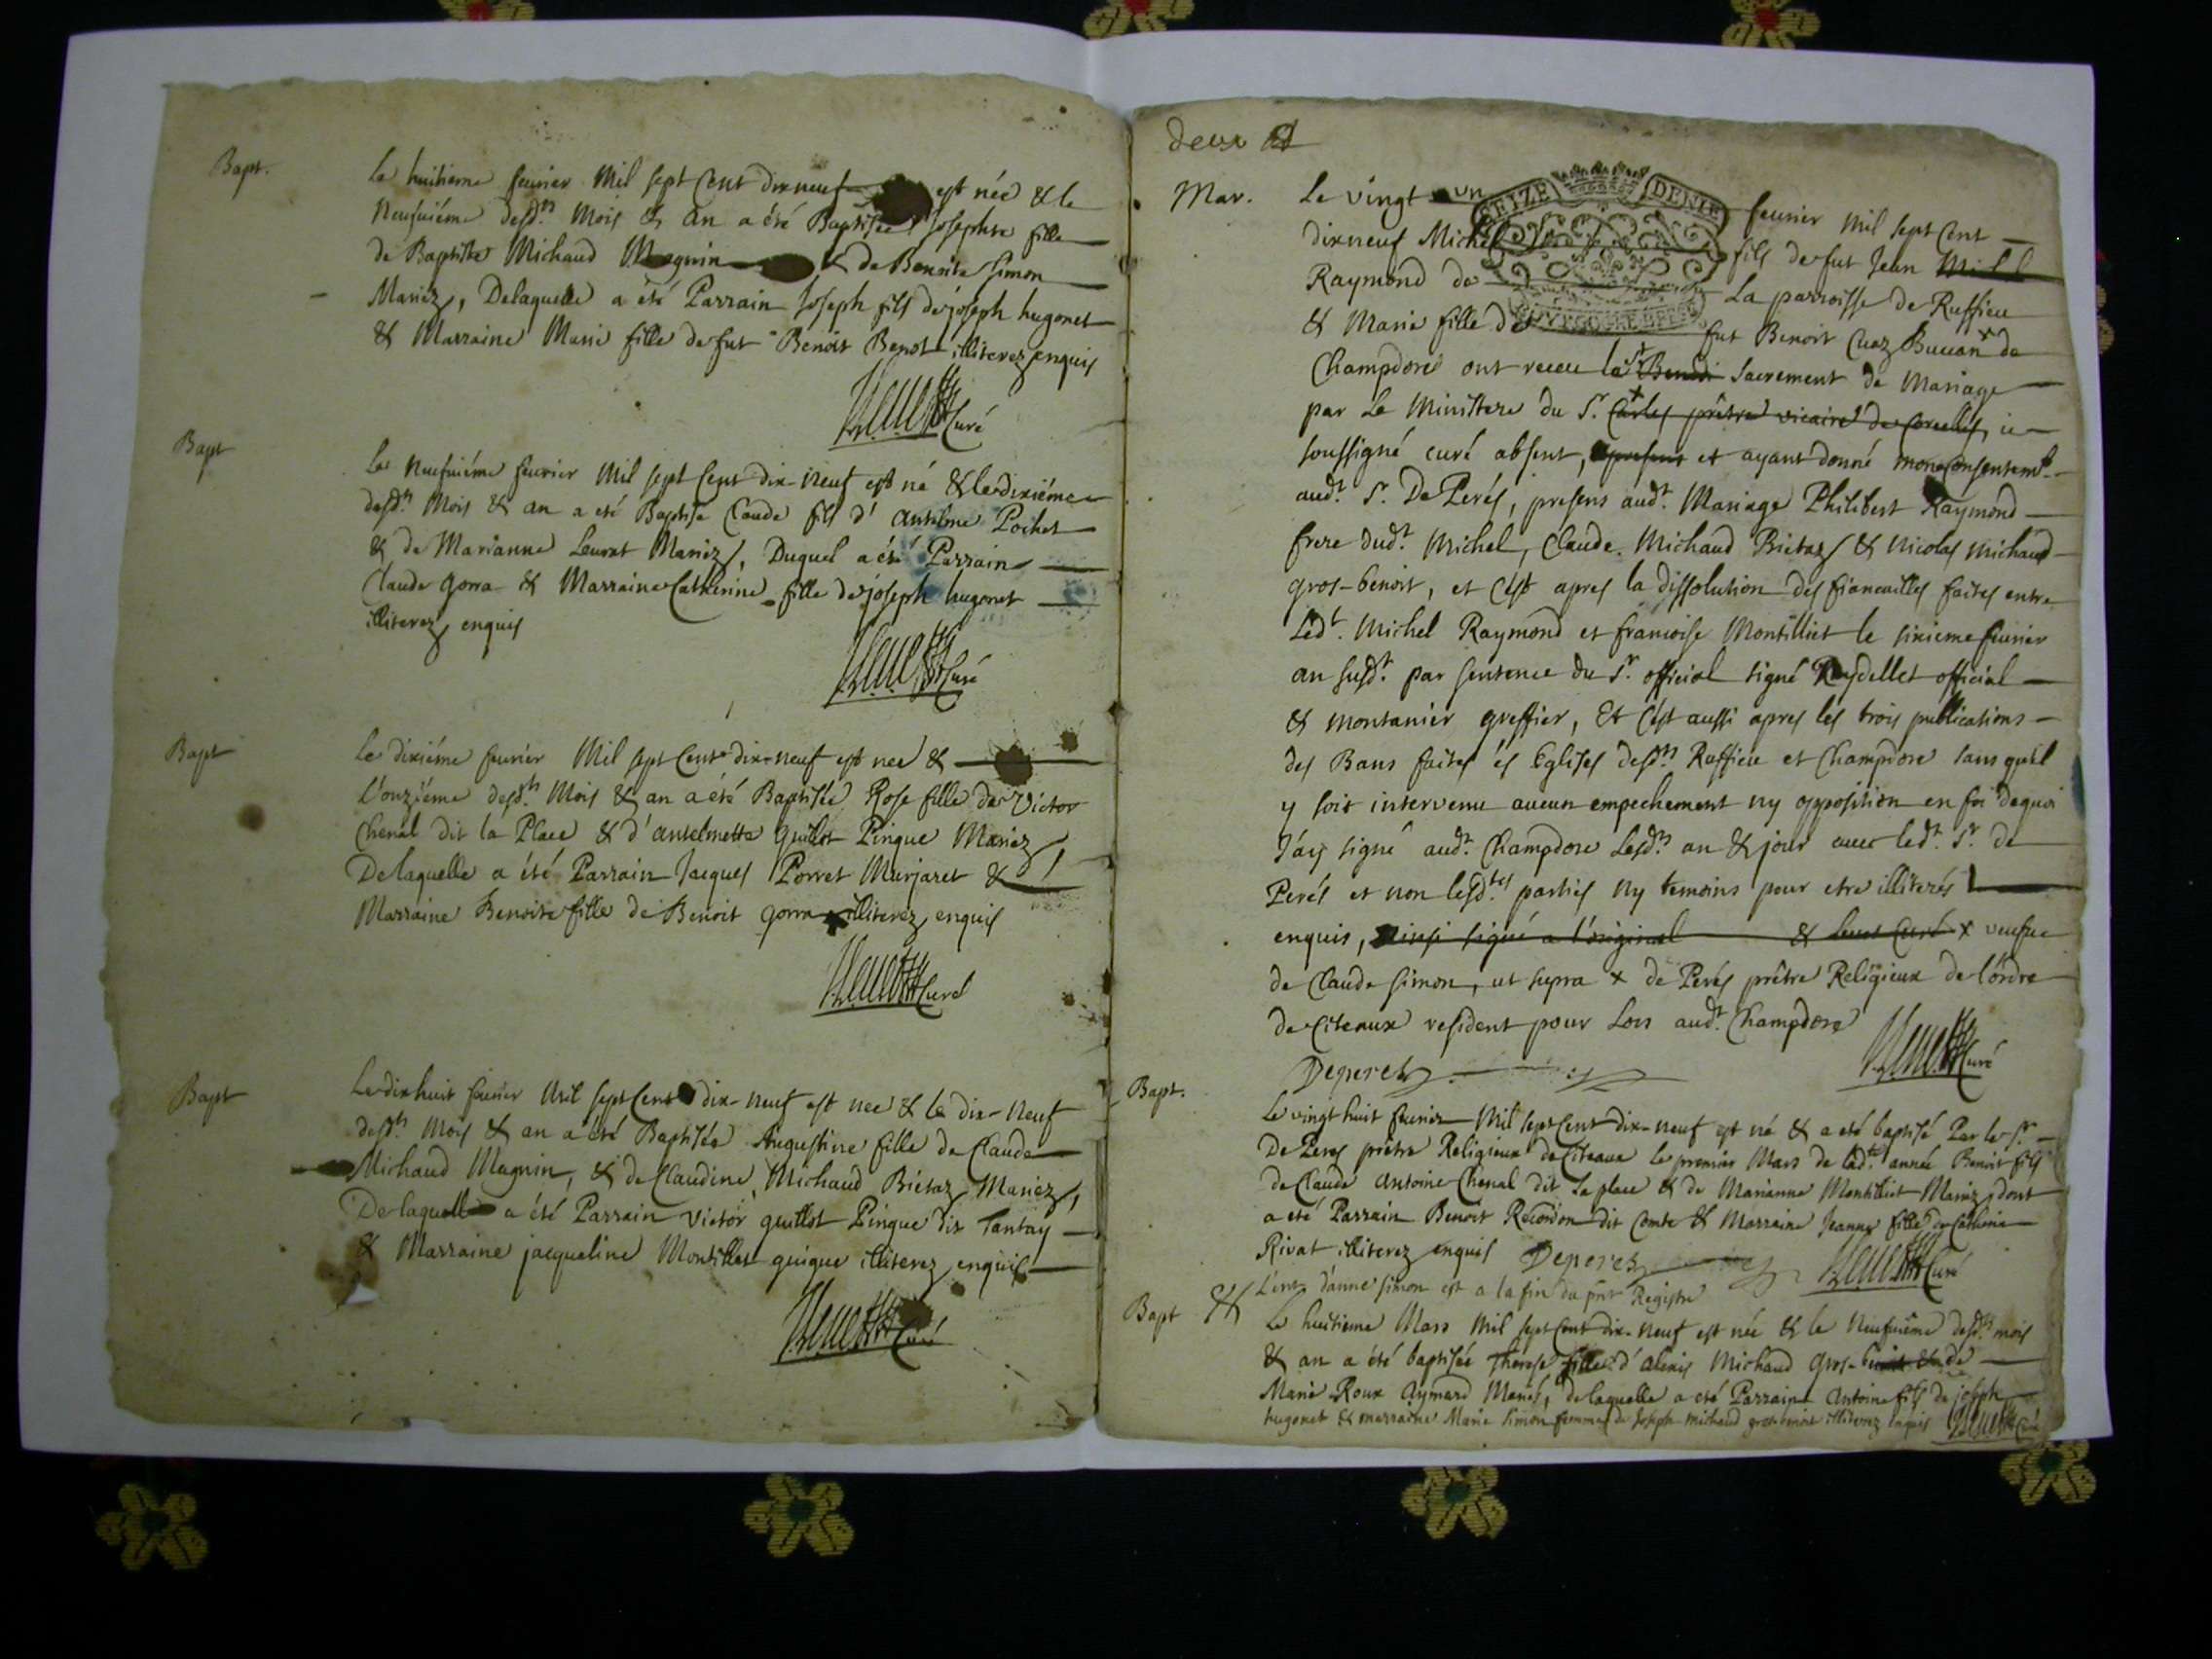 Bapt.
Le huitieme feurier Mil sept Cent dix neuf est née & le
Neufuiéme desd.ts Mois & an a été Baptisée Josephte fille
de Baptiste Michaud Magnin & de Benoite Simon
Mariez, Delaquelle a été Parrain Joseph fils de joseph hugonet
& Marraine Marie fille de fut Benoit Benot illiterez enquis
Curé
Bapt
Le Neufuiéme feurier Mil sept Cent dix-neuf est né & le dixiéme
desd.ts Mois & an a eté Baptise Claude fils d'Antelme Pochet
& de Marianne Leurat Mariez, Duquel a été Parrain
Claude gorra & Marraine Catherine fille de joseph hugonet
illiterez enquis
Curé
Bapt
Le dixiéme feurier Mil sept Cent dix-neuf est née &
l'onziéme desd.ts Mois & an a été Baptisée Rose fille de Victor
Chenal dit la Place & d'antelmette guillot Pingue Mariez
Delaquelle a été Parrain Jacques Porret Murjaret &
Marraine Benoite fille de Benoit gorra illiterez enquis
Curé
Bapt
Le dixhuit feurier Mil sept Cent dix-neuf est née & le dix-neuf
desd.ts Mois & an a été Baptisée Augustine fille de Claude
Michaud Magnin, & de Claudine Michaud Bietaz Mariez,
Delaquelle a été Parrain Victor guillot Pingue dit Tantay
& Marraine jacqueline Montillet guigue illiterez enquis
Curé
deux
Mar. Le vingt un feurier Mil sept Cent
SEIZE DENIE
dixneuf Michel fils de fut Jean
Raymond de La parroisse de Ruffieu
& Marie fille de fut Benoit Cuaz Buuan x de
Champdore ont receu le St. Sacrement de Mariage
par Le Ministere du Sr. x Carles prêtre vicaire de Corcelles, ie
soussigné curé absent, et ayant donné mon consentemt.
aud.t Sr. De Perés, presens aud.t Mariage Philibert Raymond
frere dud.t Michel, Claude Michaud Bietaz & Nicolas Michaud
gros-benoit, et c'est apres la dissolution des fiancailles faites entre
Led.t Michel Raymond et francoise Montilliet le sixieme feurier
an susd.t par sentence du Sr. official signé Reydellet official
& montanier greffier, Et c'est aussi apres les trois publications
des Bans faites és Eglises desd.ts Ruffieu et Champdore sans qu'il
y soit intervenu aucun empechement ny opposition en foi dequoi
J'ay signé aud.t Champdore Lesd.ts an & jour auec led.t Sr. de
Perés et non lesd.tes parties ny temoins pour etre illiterés
enquis, ainsi signé a l'original & Curé x veufue
de Claude Simon, ut supra x de Perés prêtre Religieux de l'ordre
de Citeaux resident pour Lors aud.t Champdore
Deperes Curé
Bapt.
Le vingt huit feurier Mil sept Cent dix-neuf est né & a eté baptisé Par le Sr.
De Peres prêtre Religieux de Citeaux le premier Mars de lad.te année Benoit fils
de Claude Antoine Chenal dit La place & de Marianne Montilliet Mariez, dont
a eté Parrain Benoit Recordon dit Comte & Marraine Jeanne fille de Catherine
Rivat illiterez enquis Deperes Curé
L'ent. d'anne Simon est a la fin du pnt Registre
Bapt
Le huitieme Mars Mil sept Cent dix-neuf est née & le Neufuiéme desd.ts mois
& an a été baptisée Therese fille d'alexis Michaud gros-benoit & de
Marie Roux Aymard Mariés, delaquelle a eté Parrain Antoine fils de joseph
hugonet & marraine Marie Simon femme de Joseph michaud gros benoit illiterez enquis Curé